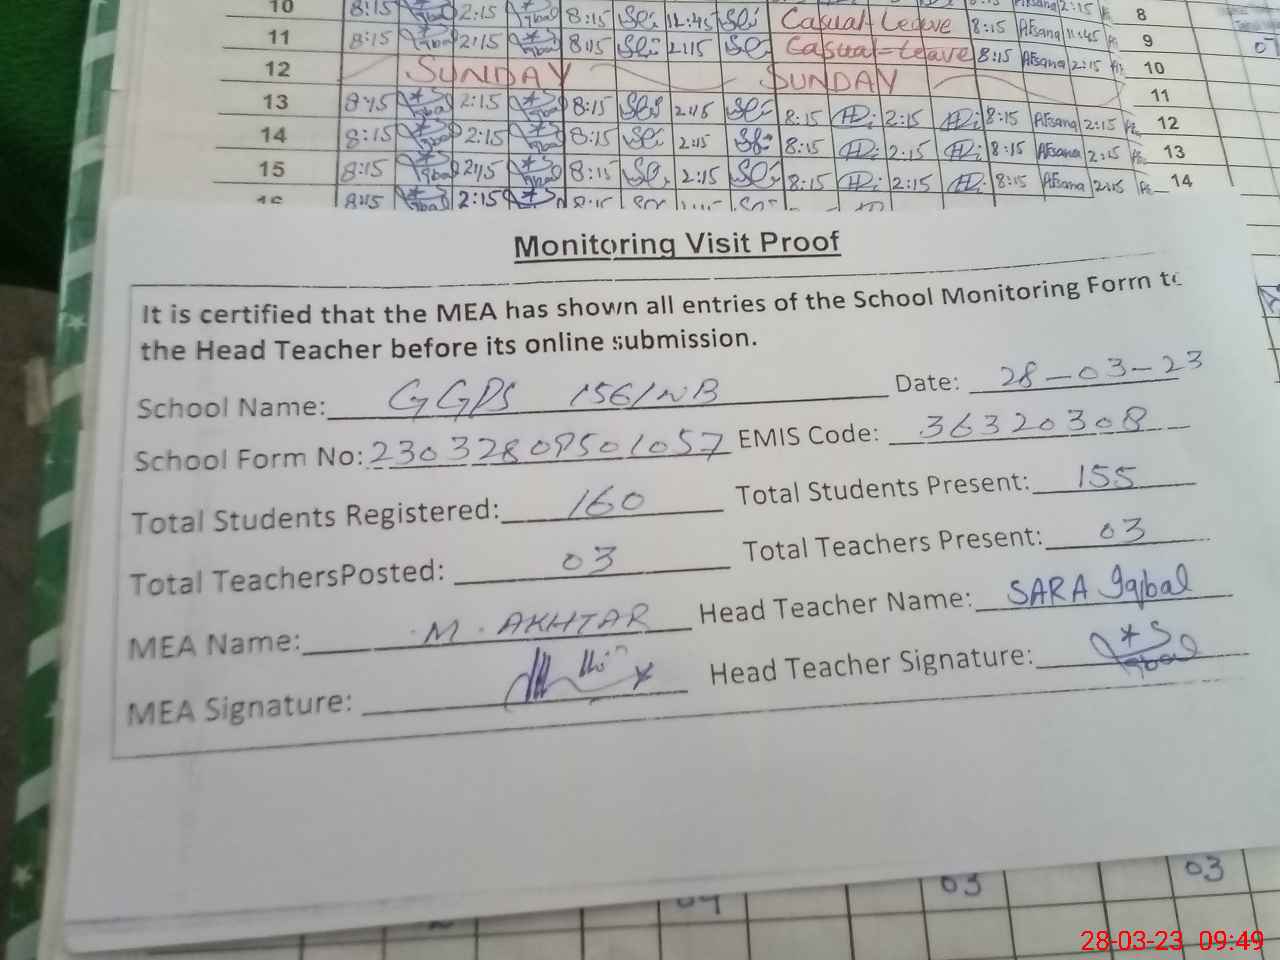 10 8:15 2:15 8:15 Se: 11:45 Se: Casual Leave 8:15 Afsana 11:45 8
11 8:15 2:15 8:15 Se: 2:15 Se: Casual-Leave 8:15 Afsana 2:15 9
12 SUNDAY SUNDAY 10
13 8:15 2:15 8:15 Se: 2:15 Se: 8:15 2:15 8:15 Afsana 2:15 11
14 8:15 2:15 8:15 Se: 2:15 Se: 8:15 2:15 8:15 Afsana 2:15 12
15 8:15 2:15 8:15 Se: 2:15 Se: 8:15 2:15 8:15 Afsana 2:15 13
8:15 2:15 14
Monitoring Visit Proof
It is certified that the MEA has shown all entries of the School Monitoring Form to
the Head Teacher before its online submission.
School Name: GGPS 156/NB Date: 28-03-23
School Form No: 23032809501057 EMIS Code: 36320308
Total Students Registered: 160 Total Students Present: 155
Total TeachersPosted: 03 Total Teachers Present: 03
MEA Name: M. AKHTAR Head Teacher Name: SARA Iqbal
MEA Signature: Head Teacher Signature: Iqbal
03 03
04
28-03-23 09:49